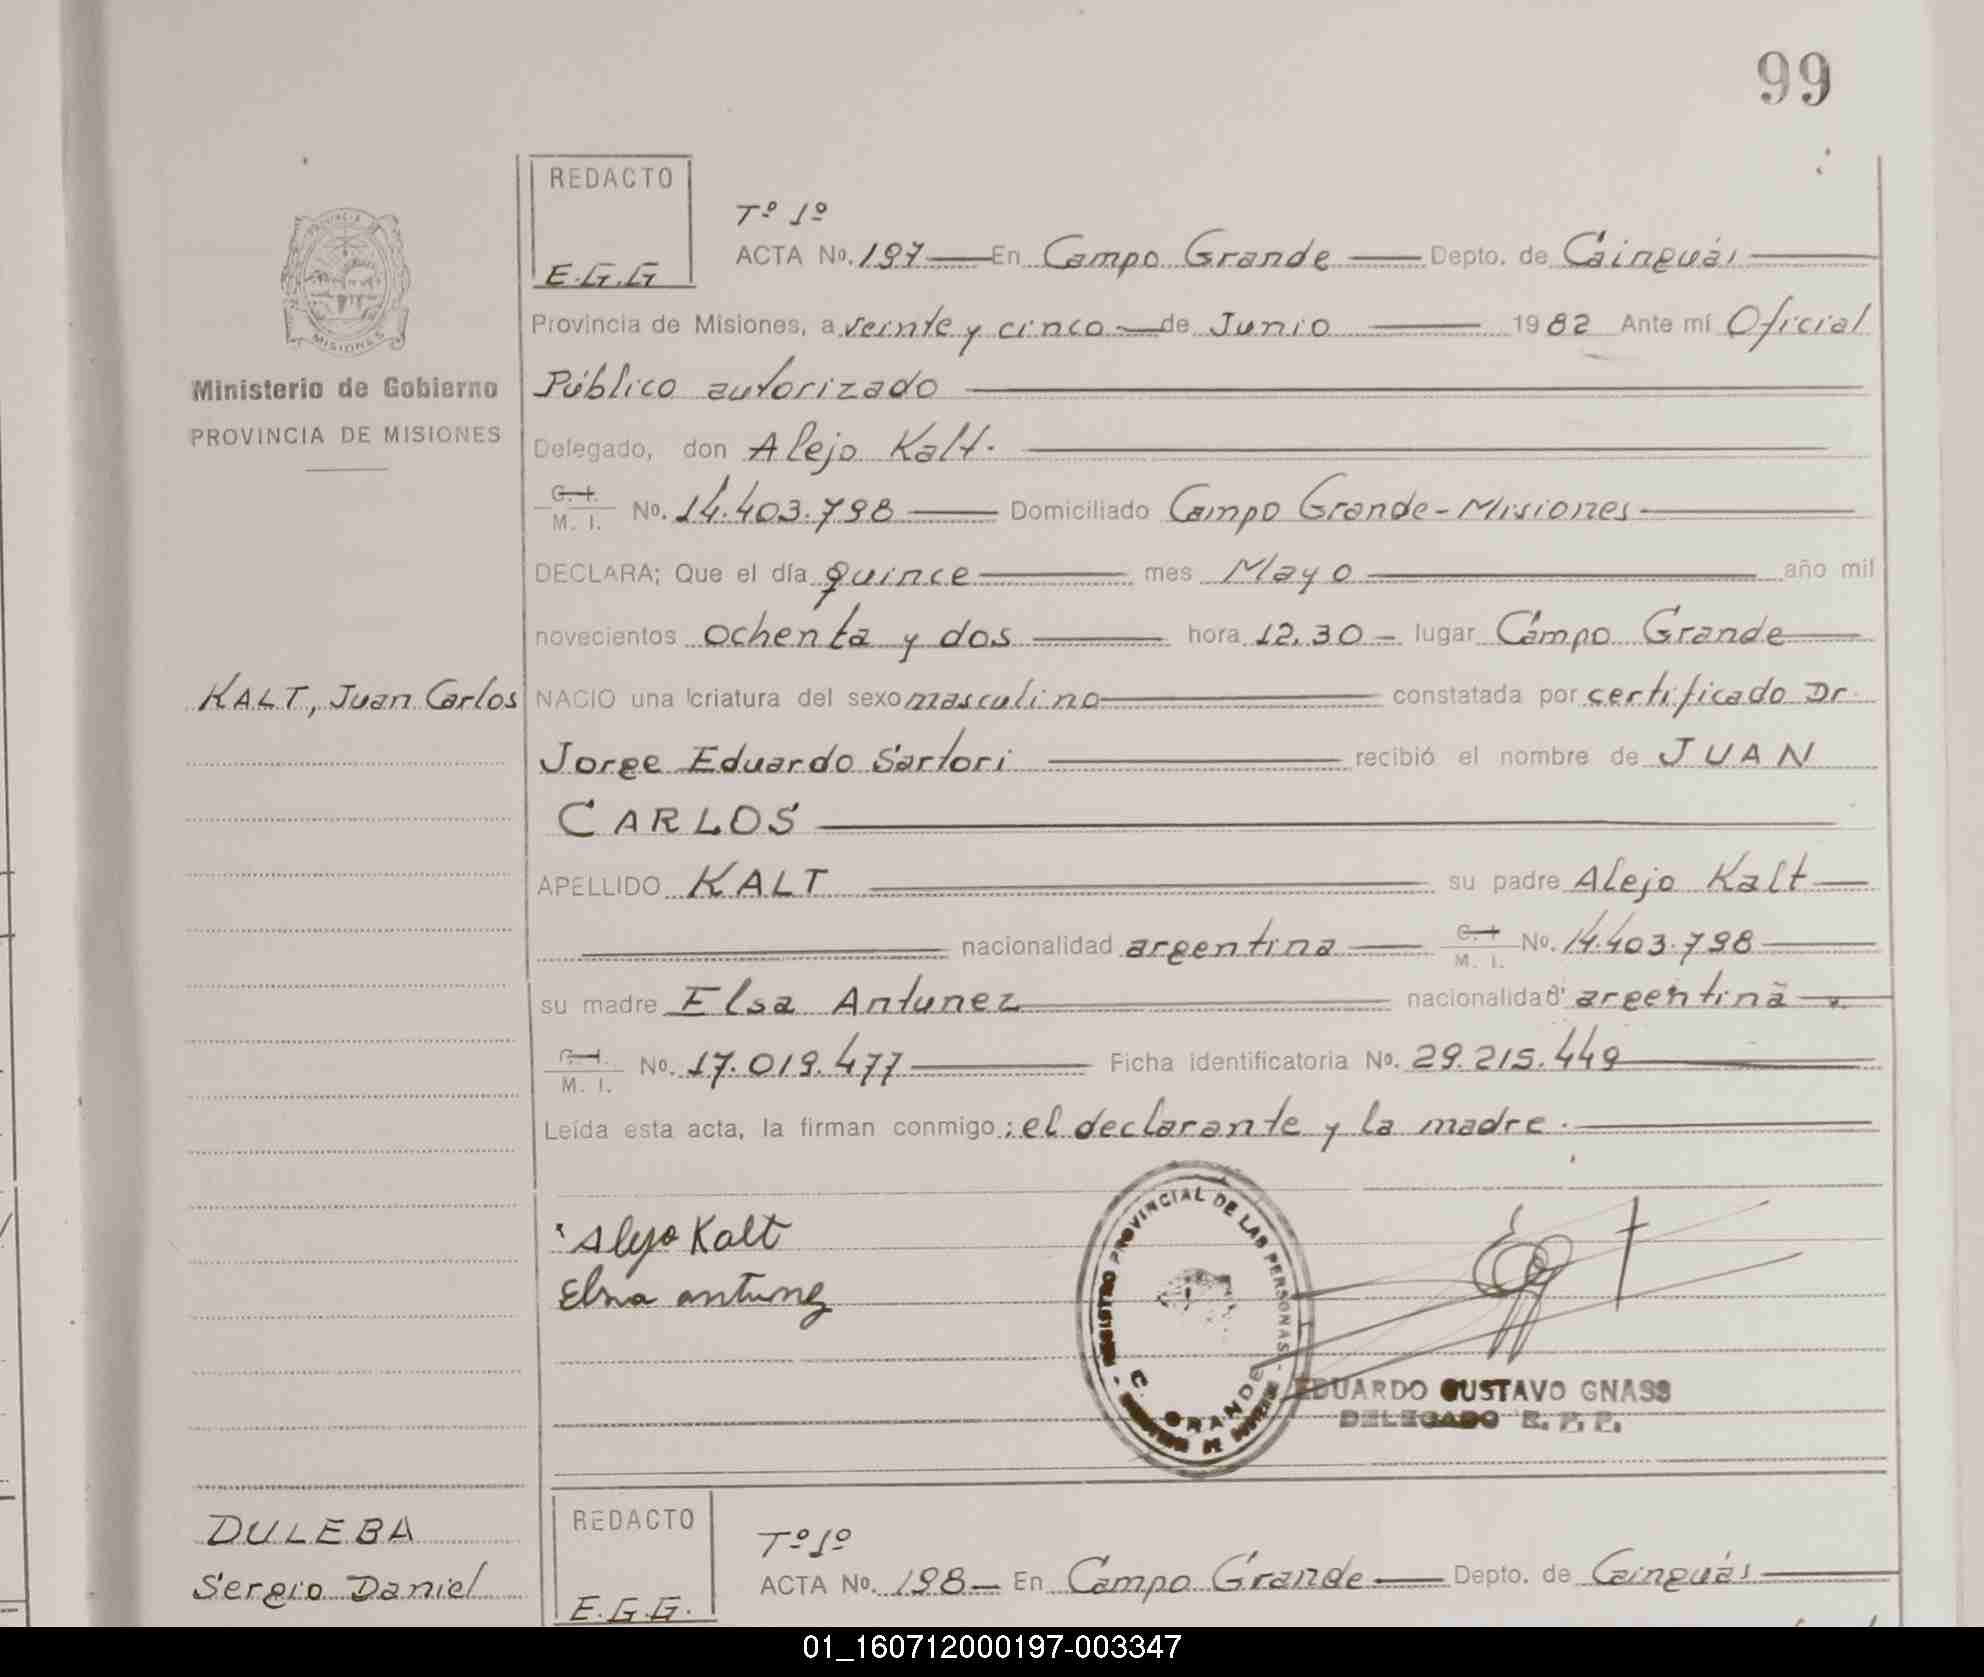 99
REDACTO
E.G.G
Tº 1º
ACTA No. 197 En Campo Grande Depto. de Cainguás
Provincia de Misiones, a veinte y cinco de Junio 1982 Ante mí Oficial
Público autorizado
Delegado, don Alejo Kalt.
C. I.
M. I. No. 14.403.798 Domiciliado Campo Grande - Misiones
DECLARA; Que el día quince mes Mayo año mil
novecientos ochenta y dos hora 12.30 lugar Campo Grande
NACIO una criatura del sexo masculino constatada por certificado Dr.
Jorge Eduardo Sartori recibió el nombre de JUAN
CARLOS
APELLIDO KALT su padre Alejo Kalt
nacionalidad argentina C. I.
M. I. No. 14.403.798
su madre Elsa Antunez nacionalidad argentina
C. I.
M. I. No. 17.019.477 Ficha identificatoria No. 29.215.449
Leída esta acta, la firman conmigo; el declarante y la madre.
Alejo Kalt
Elsa antunez
REGISTRO PROVINCIAL DE LAS PERSONAS
C. GRANDE
EDUARDO GUSTAVO GNASS
DELEGADO R. P. P.
MISIONES
Ministerio de Gobierno
PROVINCIA DE MISIONES
KALT, Juan Carlos
DULEBA
Sergio Daniel
REDACTO
E.G.G.
Tº 1º
ACTA No. 198 En Campo Grande Depto. de Cainguás
01_160712000197-003347